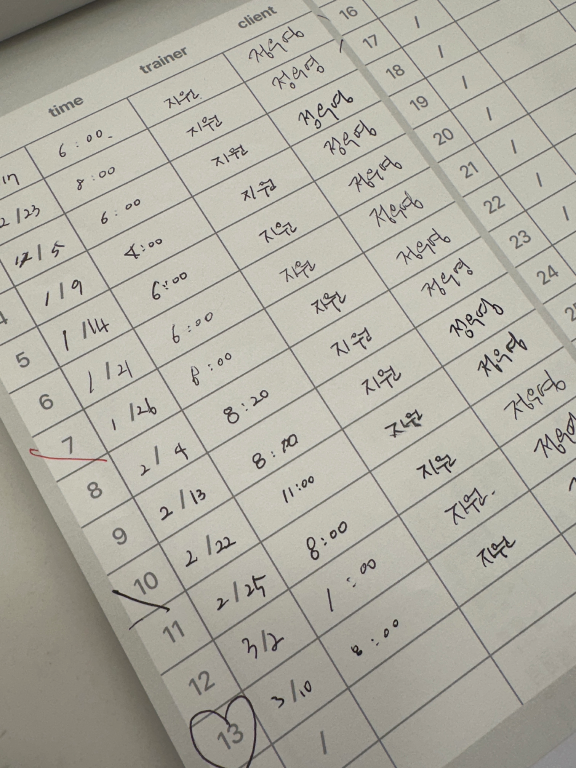 time trainer client
17 6:00 지원 정우영
2/23 8:00 지원 정우영
12/5 6:00 지원 정우영
1/9 :00 지원 정우영
5 1/14 6:00 지원 정우영
6 1/21 6:00 지원 정우영
7 1/26 8:00 지원 정우영
8 2/4 8:20 지원 정우영
9 2/13 8:00 지원 정우영
10 2/22 11:00 지원 정우영
11 2/25 8:00 지원 정우영
12 3/2 1:00 지원 정우영
13 3/10 8:00 지원
/
16
17 /
18 /
19 /
20 /
21 /
22 /
23 /
24